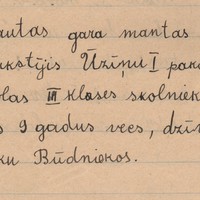 autas gara mantas
akstījis Ūziņu I pak
olas III klases skolniek
s 9 gadus vecs, dzīv
ku Būdniekos.